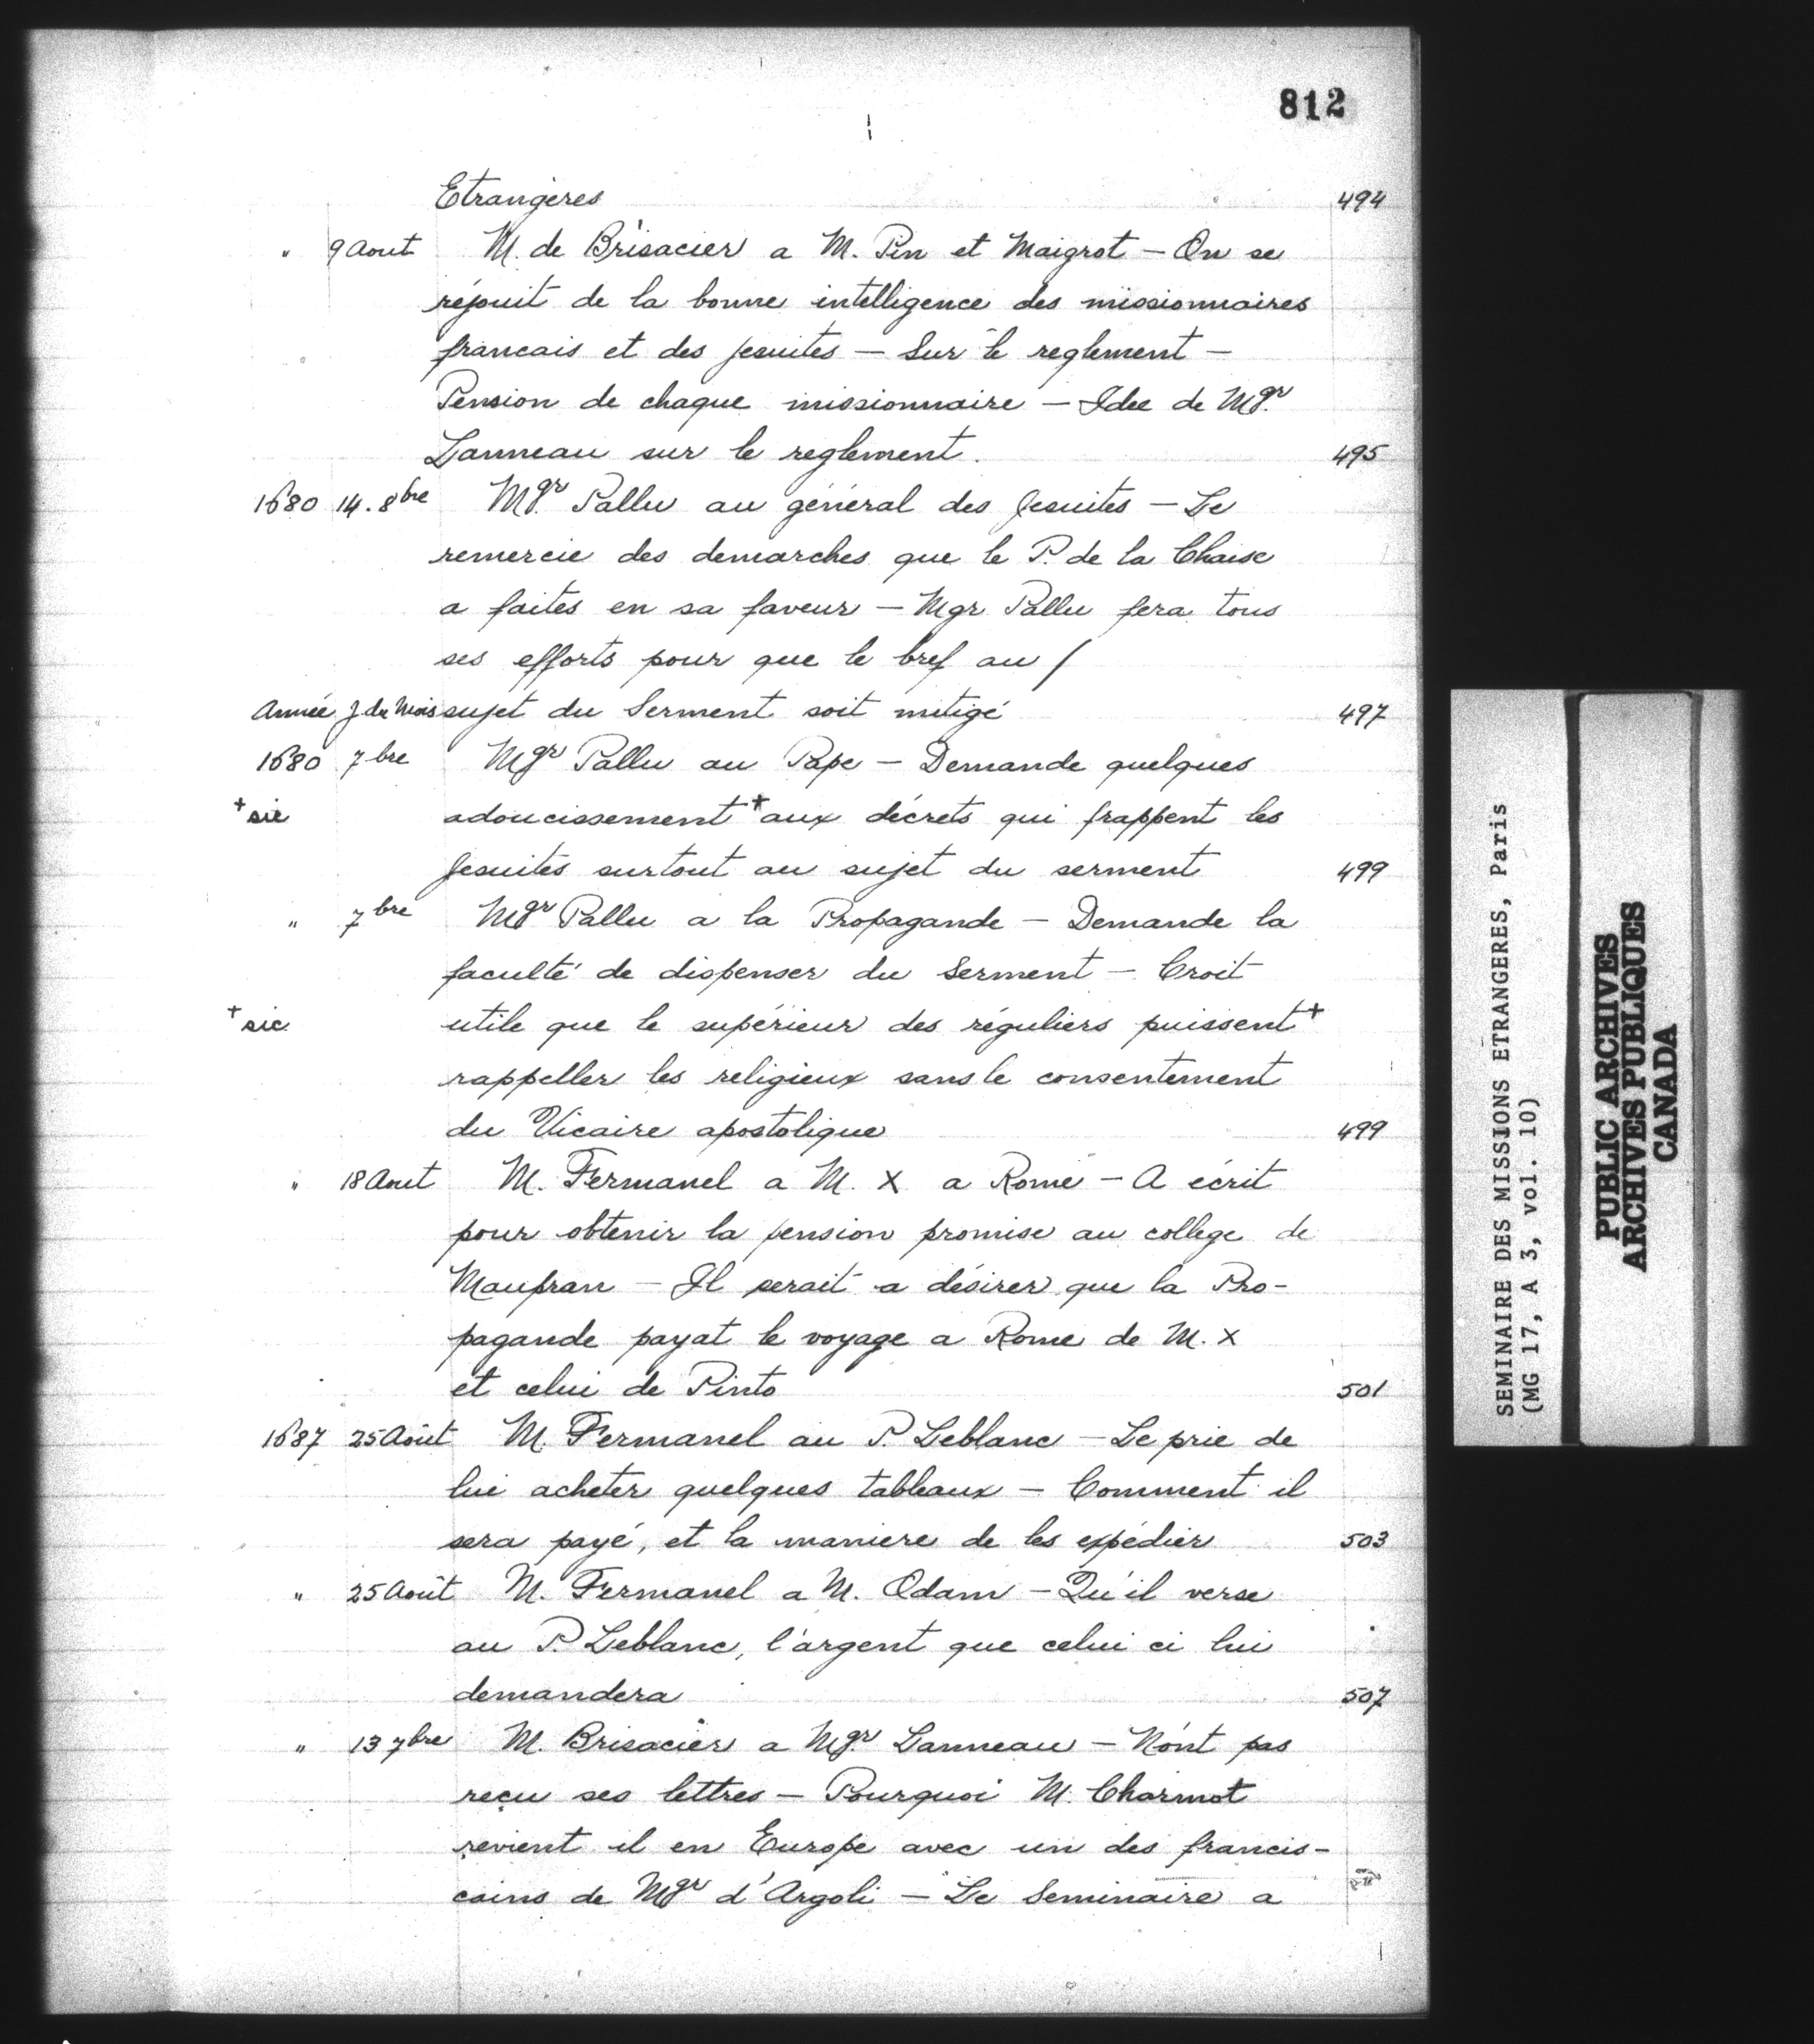 812
Etrangères 494
" 9 Aout M. de Brisacier a M. Pin et Maigrot — On se
réjouit de la bonne intelligence des missionnaires
francais et des Jesuites — Sur le reglement —
Pension de chaque missionnaire — Idee de Mgr.
Lanneau sur le reglement. 495
1680 14. 8bre Mgr. Pallu au général des Jesuites — Le
remercie des demarches que le P. de la Chaise
a faites en sa faveur — Mgr Pallu fera tous
ses efforts pour que le bref au /
Année J. du Mois sujet du Serment soit mitigé 497
1680 7bre Mgr Pallu au Pape — Demande quelques
+ sic adoucissement + aux décrets qui frappent les
Jesuites surtout au sujet du serment 499
" 7bre Mgr Pallu a la Propagande — Demande la
faculté de dispenser du Serment — Croit
+ sic utile que le supérieur des réguliers puissent +
rappeller les religieux sans le consentement
du Vicaire apostolique 499
" 18 Aout M. Fermanel a M. X a Rome — A écrit
pour obtenir la pension promise au college de
Maupran — Il serait a désirer que la Pro-
pagande payat le voyage a Rome de M. X
et celui de Pinto 501
1687 25 Août M. Fermanel au P. Leblanc — Le prie de
lui acheter quelques tableaux — Comment il
sera payé, et la maniere de les expédier 503
" 25 Août M. Fermanel a M. Odam — Qu'il verse
au P. Leblanc, l'argent que celui ci lui
demandera 507
" 13 7bre M. Brisacier a Mgr. Lanneau — N'ont pas
reçu ses lettres — Pourquoi M. Charmot
revient il en Europe avec un des francis-
cains de Mgr d'Argoli — Le Seminaire a
SEMINAIRE DES MISSIONS ETRANGERES, Paris
(MG 17, A 3, vol. 10)
PUBLIC ARCHIVES
ARCHIVES PUBLIQUES
CANADA